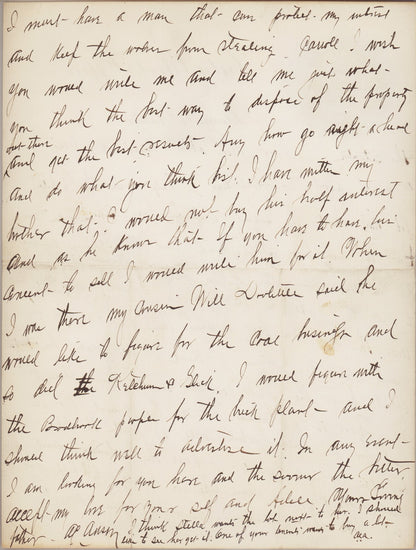 I must have a man that can protect my interest
and keep the wolves from stealing I wish
you would write me and tell me just what
you think the best way to dispose of the property
out there
and get the best results. Any how go right ahead
and do what you think best. I have written my
brother that I would not buy his half interest
and as he knows that if you have to have his
consent to sell I would write him for it. When
I was there my cousin Will Doolittle said he
would like to figure for the coal business and
so did Ketchum & I would figure with
the people for the brick plant and I
should think well to advertise it. In any event
I am looking for you here and the sooner the better
accept my love for your self and Your loving
father I think wants the lot next to her. I should
like to see her get it. One of your wants to buy a lot